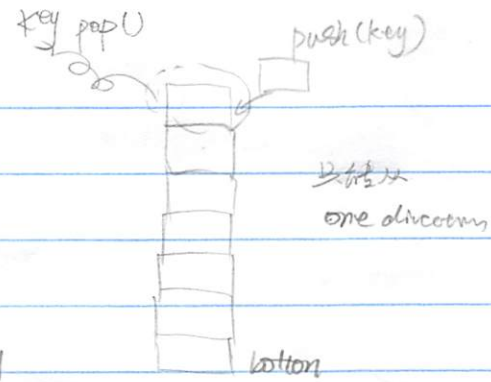 key pop()
push(key)
只能从
one direction
botton